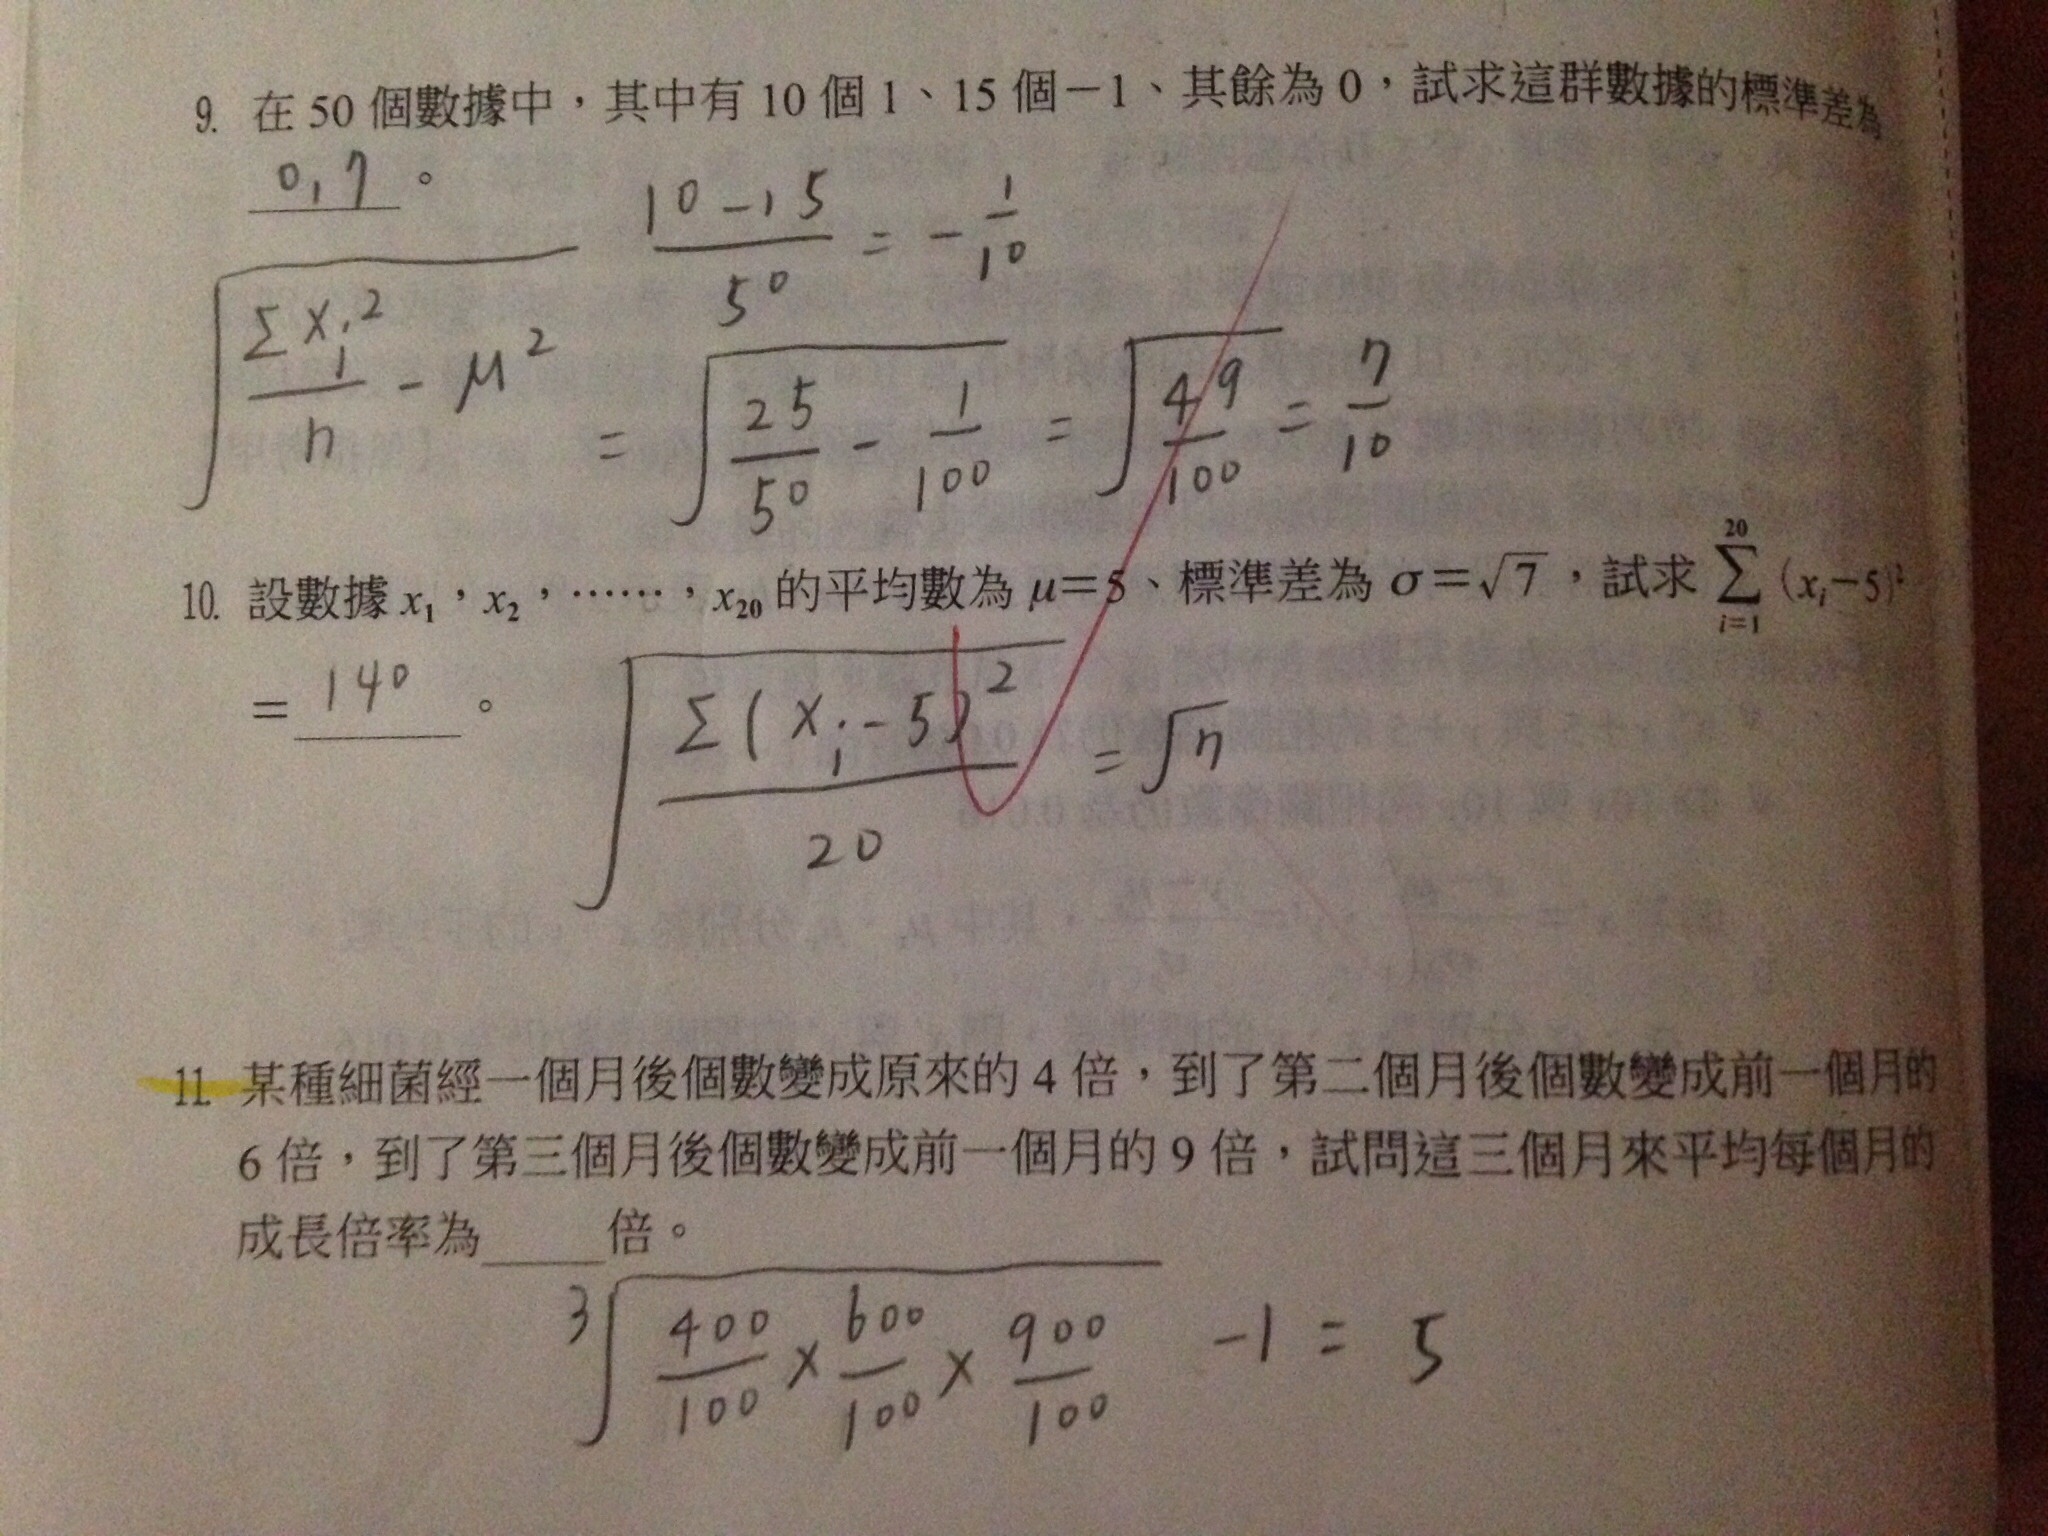 9. 在 50 個數據中，其中有 10 個 1、15 個－1、其餘為 0，試求這群數據的標準差為
0.7 。
10-15/50 = -1/10
√(Σxi²/n - μ²) = √(25/50 - 1/100) = √(49/100) = 7/10
10. 設數據 x₁，x₂，……，x₂₀ 的平均數為 μ＝5、標準差為 σ＝√7，試求 Σ_{i=1}^{20} (xᵢ－5)²
＝ 140 。
√(Σ(xi-5)²/20) = √7
11. 某種細菌經一個月後個數變成原來的 4 倍，到了第二個月後個數變成前一個月的
6 倍，到了第三個月後個數變成前一個月的 9 倍，試問這三個月來平均每個月的
成長倍率為____倍。
³√(400/100 × 600/100 × 900/100) -1 = 5